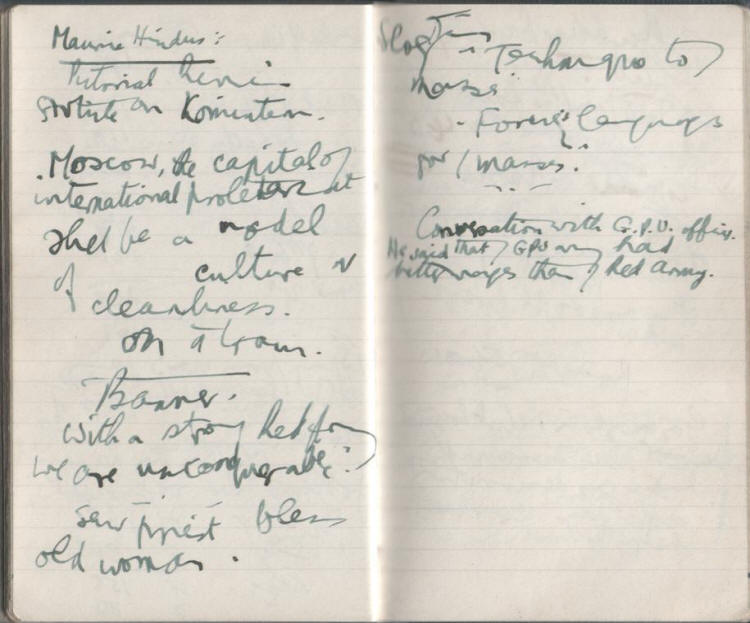 Maurice Hindus:
Pictorial Review
Article on Komintern.
Moscow, the capital of
international proletariat
shall be a model
of culture &
cleanliness.
on a tram.
Banner.
With a strong Red Army
we are unconquerable.
Saw priest bless
old woman.
Slogans
- Technique to
masses.
- Foreign languages
for masses.
Conversation with G.P.U. officer.
He said that GPU army had
better wages than Red Army.